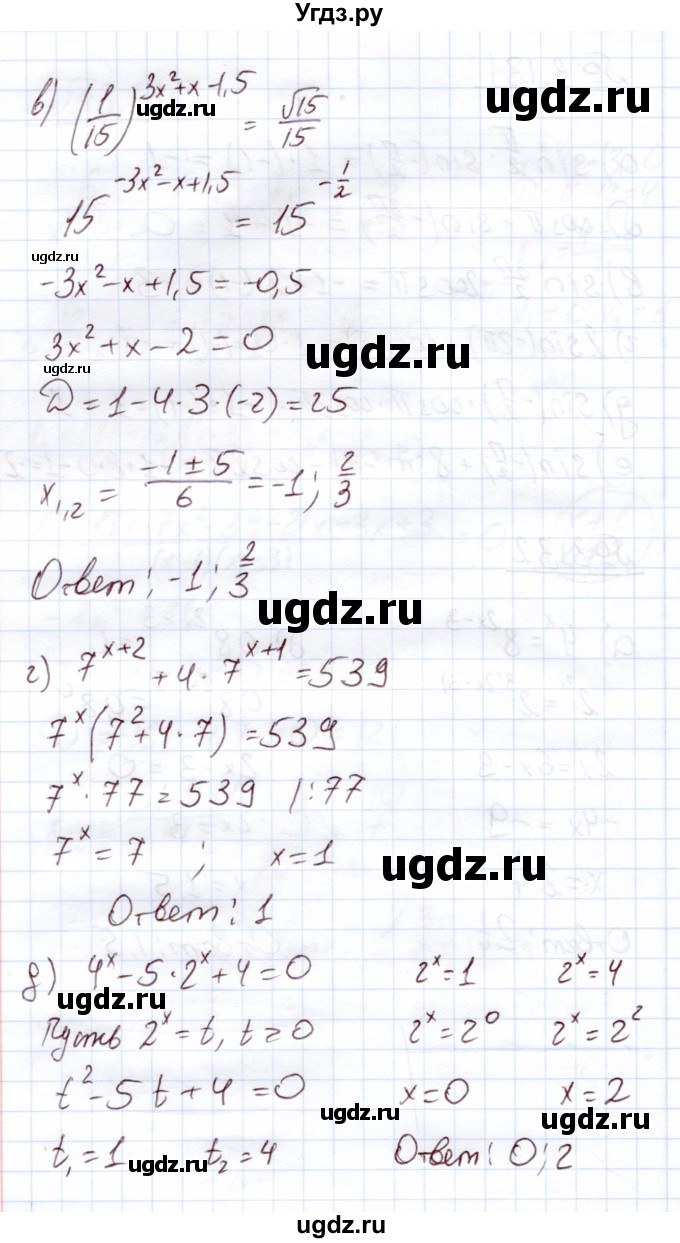 Угдз.ру
в) (1/15)^(3x²+x-1,5) = √15/15
15^(-3x²-x+1,5) = 15^(-1/2)
ugdz.ru
-3x²-x+1,5=-0,5
3x²+x-2=0
ugdz.ru
ugdz.ru
D=1-4·3·(-2)=25
x₁,₂ = (-1±5)/6 = -1; 2/3
Ответ: -1; 2/3
ugdz.ru
г) 7^(x+2) + 4·7^(x+1) = 539
7^x(7²+4·7)=539
7^x·77=539 |:77
7^x=7 ; x=1
ugdz.ru
Ответ: 1
д) 4^x-5·2^x+4=0 2^x=1 2^x=4
ugdz.ru
Пусть 2^x=t, t≥0 2^x=2⁰ 2^x=2²
t²-5t+4=0 x=0 x=2
ugdz.ru
ugdz.ru
t₁=1 t₂=4 Ответ: 0; 2
ugdz.ru
ugdz.ru